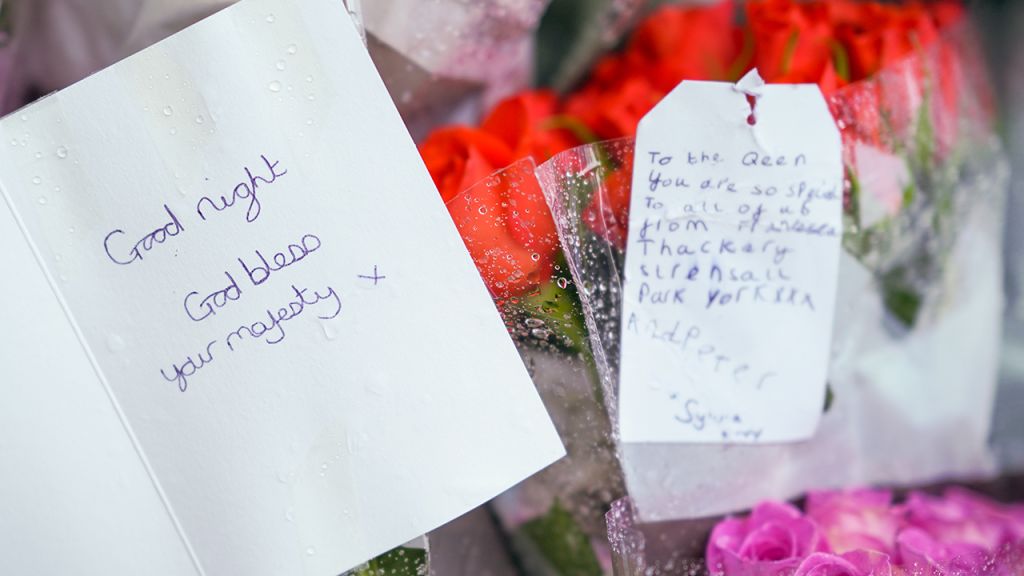 Good night
God bless
your majesty x
To the Qeen
You are so
To all of us
from
Thackery
Strensall
Park YORKXXX
And Peter
Sylvia